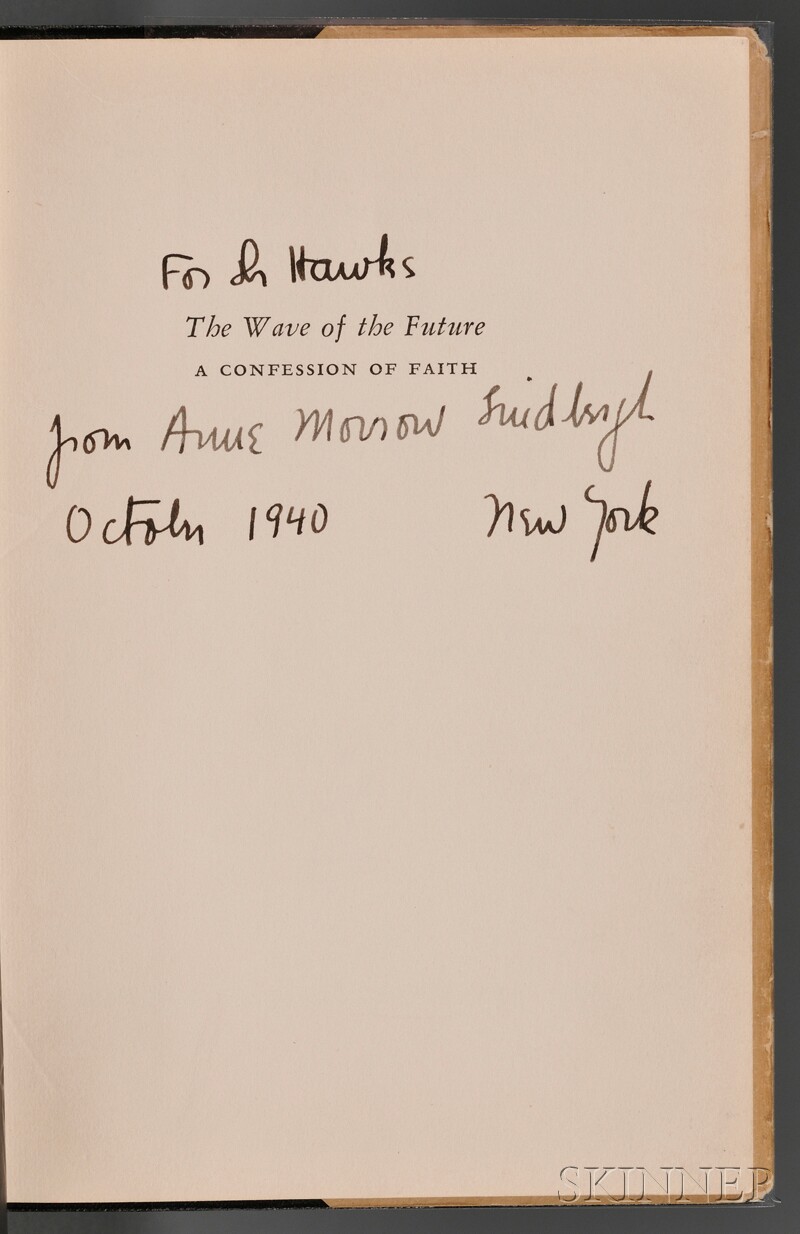 For Dr Hawks
The Wave of the Future
A CONFESSION OF FAITH
from Anne Morrow Lindbergh
October 1940 New York
SKINNER